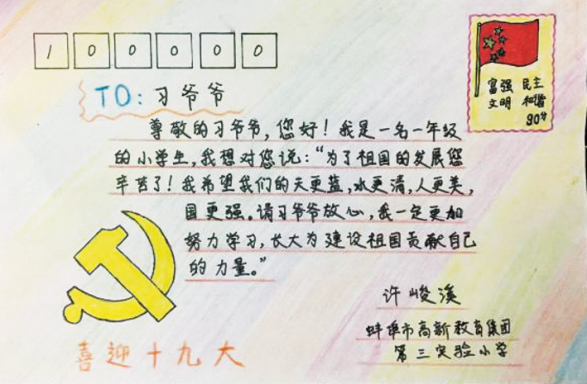 100000
富强 民主
文明 和谐
90分
TO: 习爷爷
尊敬的习爷爷,您好!我是一名一年级
的小学生,我想对您说:“为了祖国的发展您
辛苦了!我希望我们的天更蓝,水更清,人更美,
国更强。请习爷爷放心,我一定更加
努力学习,长大为建设祖国贡献自己
的力量。”
许峻溪
蚌埠市高新教育集团
第三实验小学
喜迎十九大